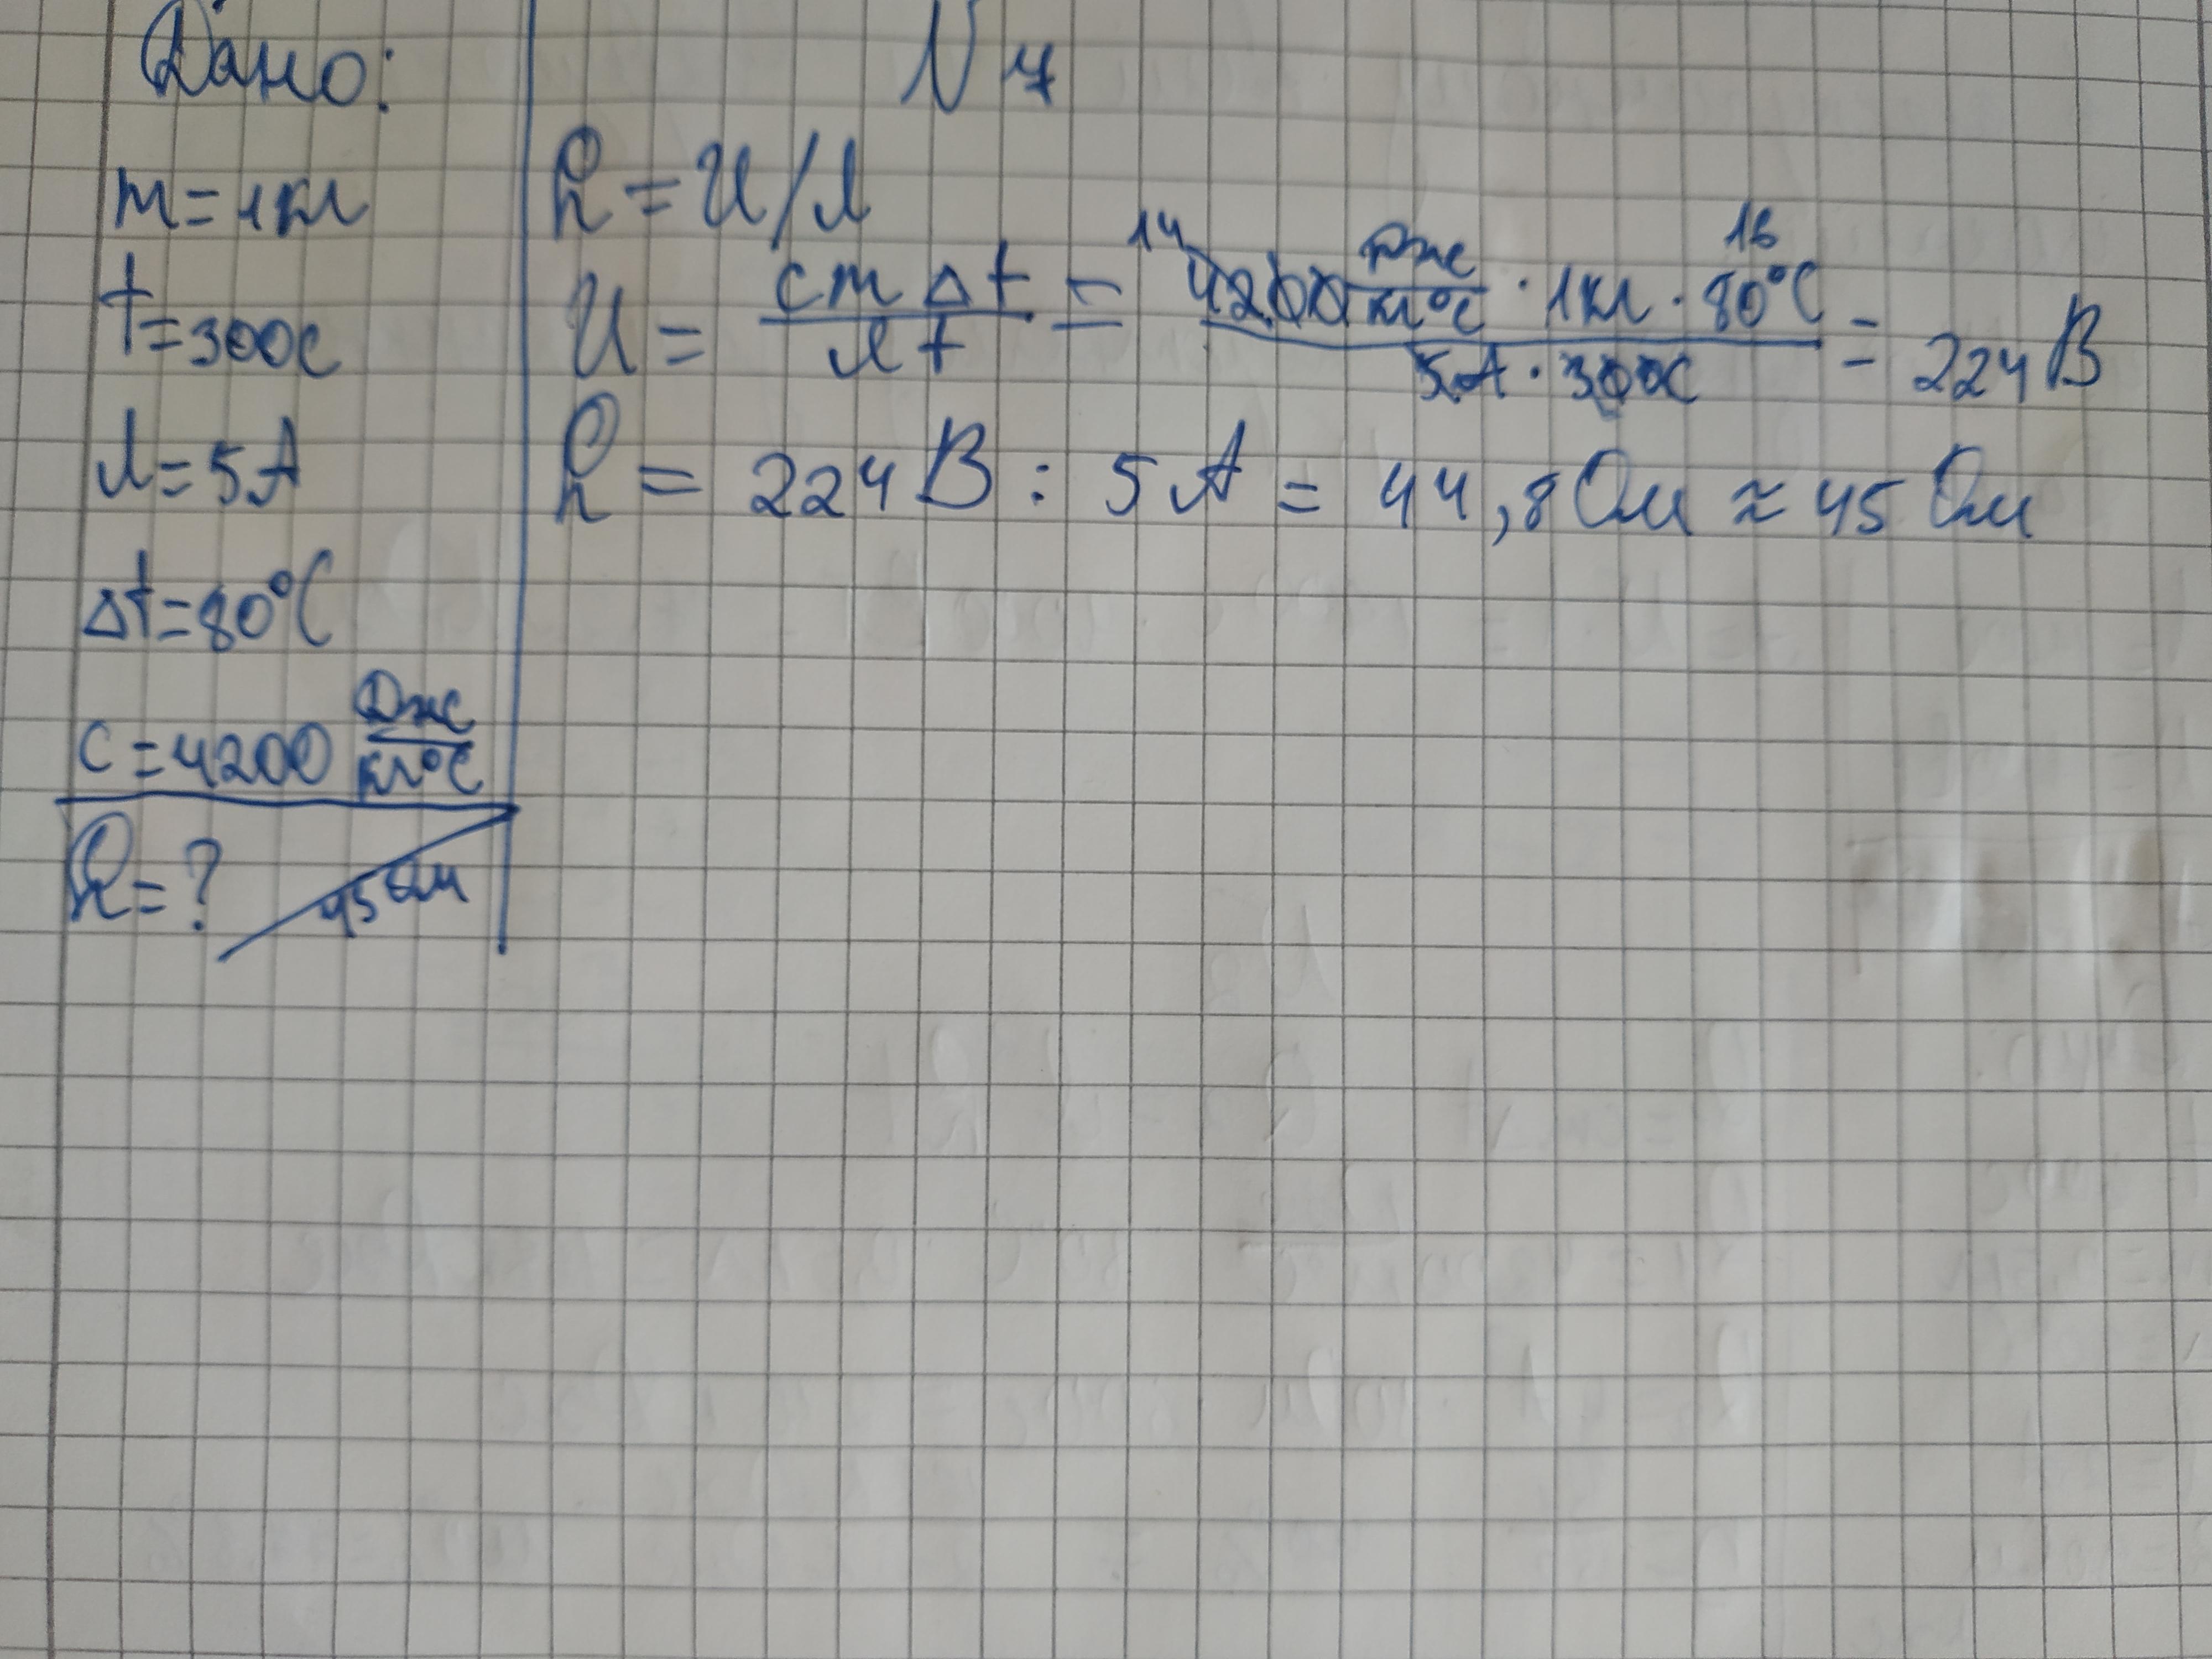 Дано:
m = 1кг
t = 300с
I = 5А
Δt = 80°C
c = 4200 Дж/кг°C
R = ? 45 Ом
N 4
R = U/I
U = cmΔt/It = 14 4200 Дж/кг°C · 1кг · 16 80°C / 5А · 300с = 224 В
R = 224 В : 5 А = 44,8 Ом ≈ 45 Ом